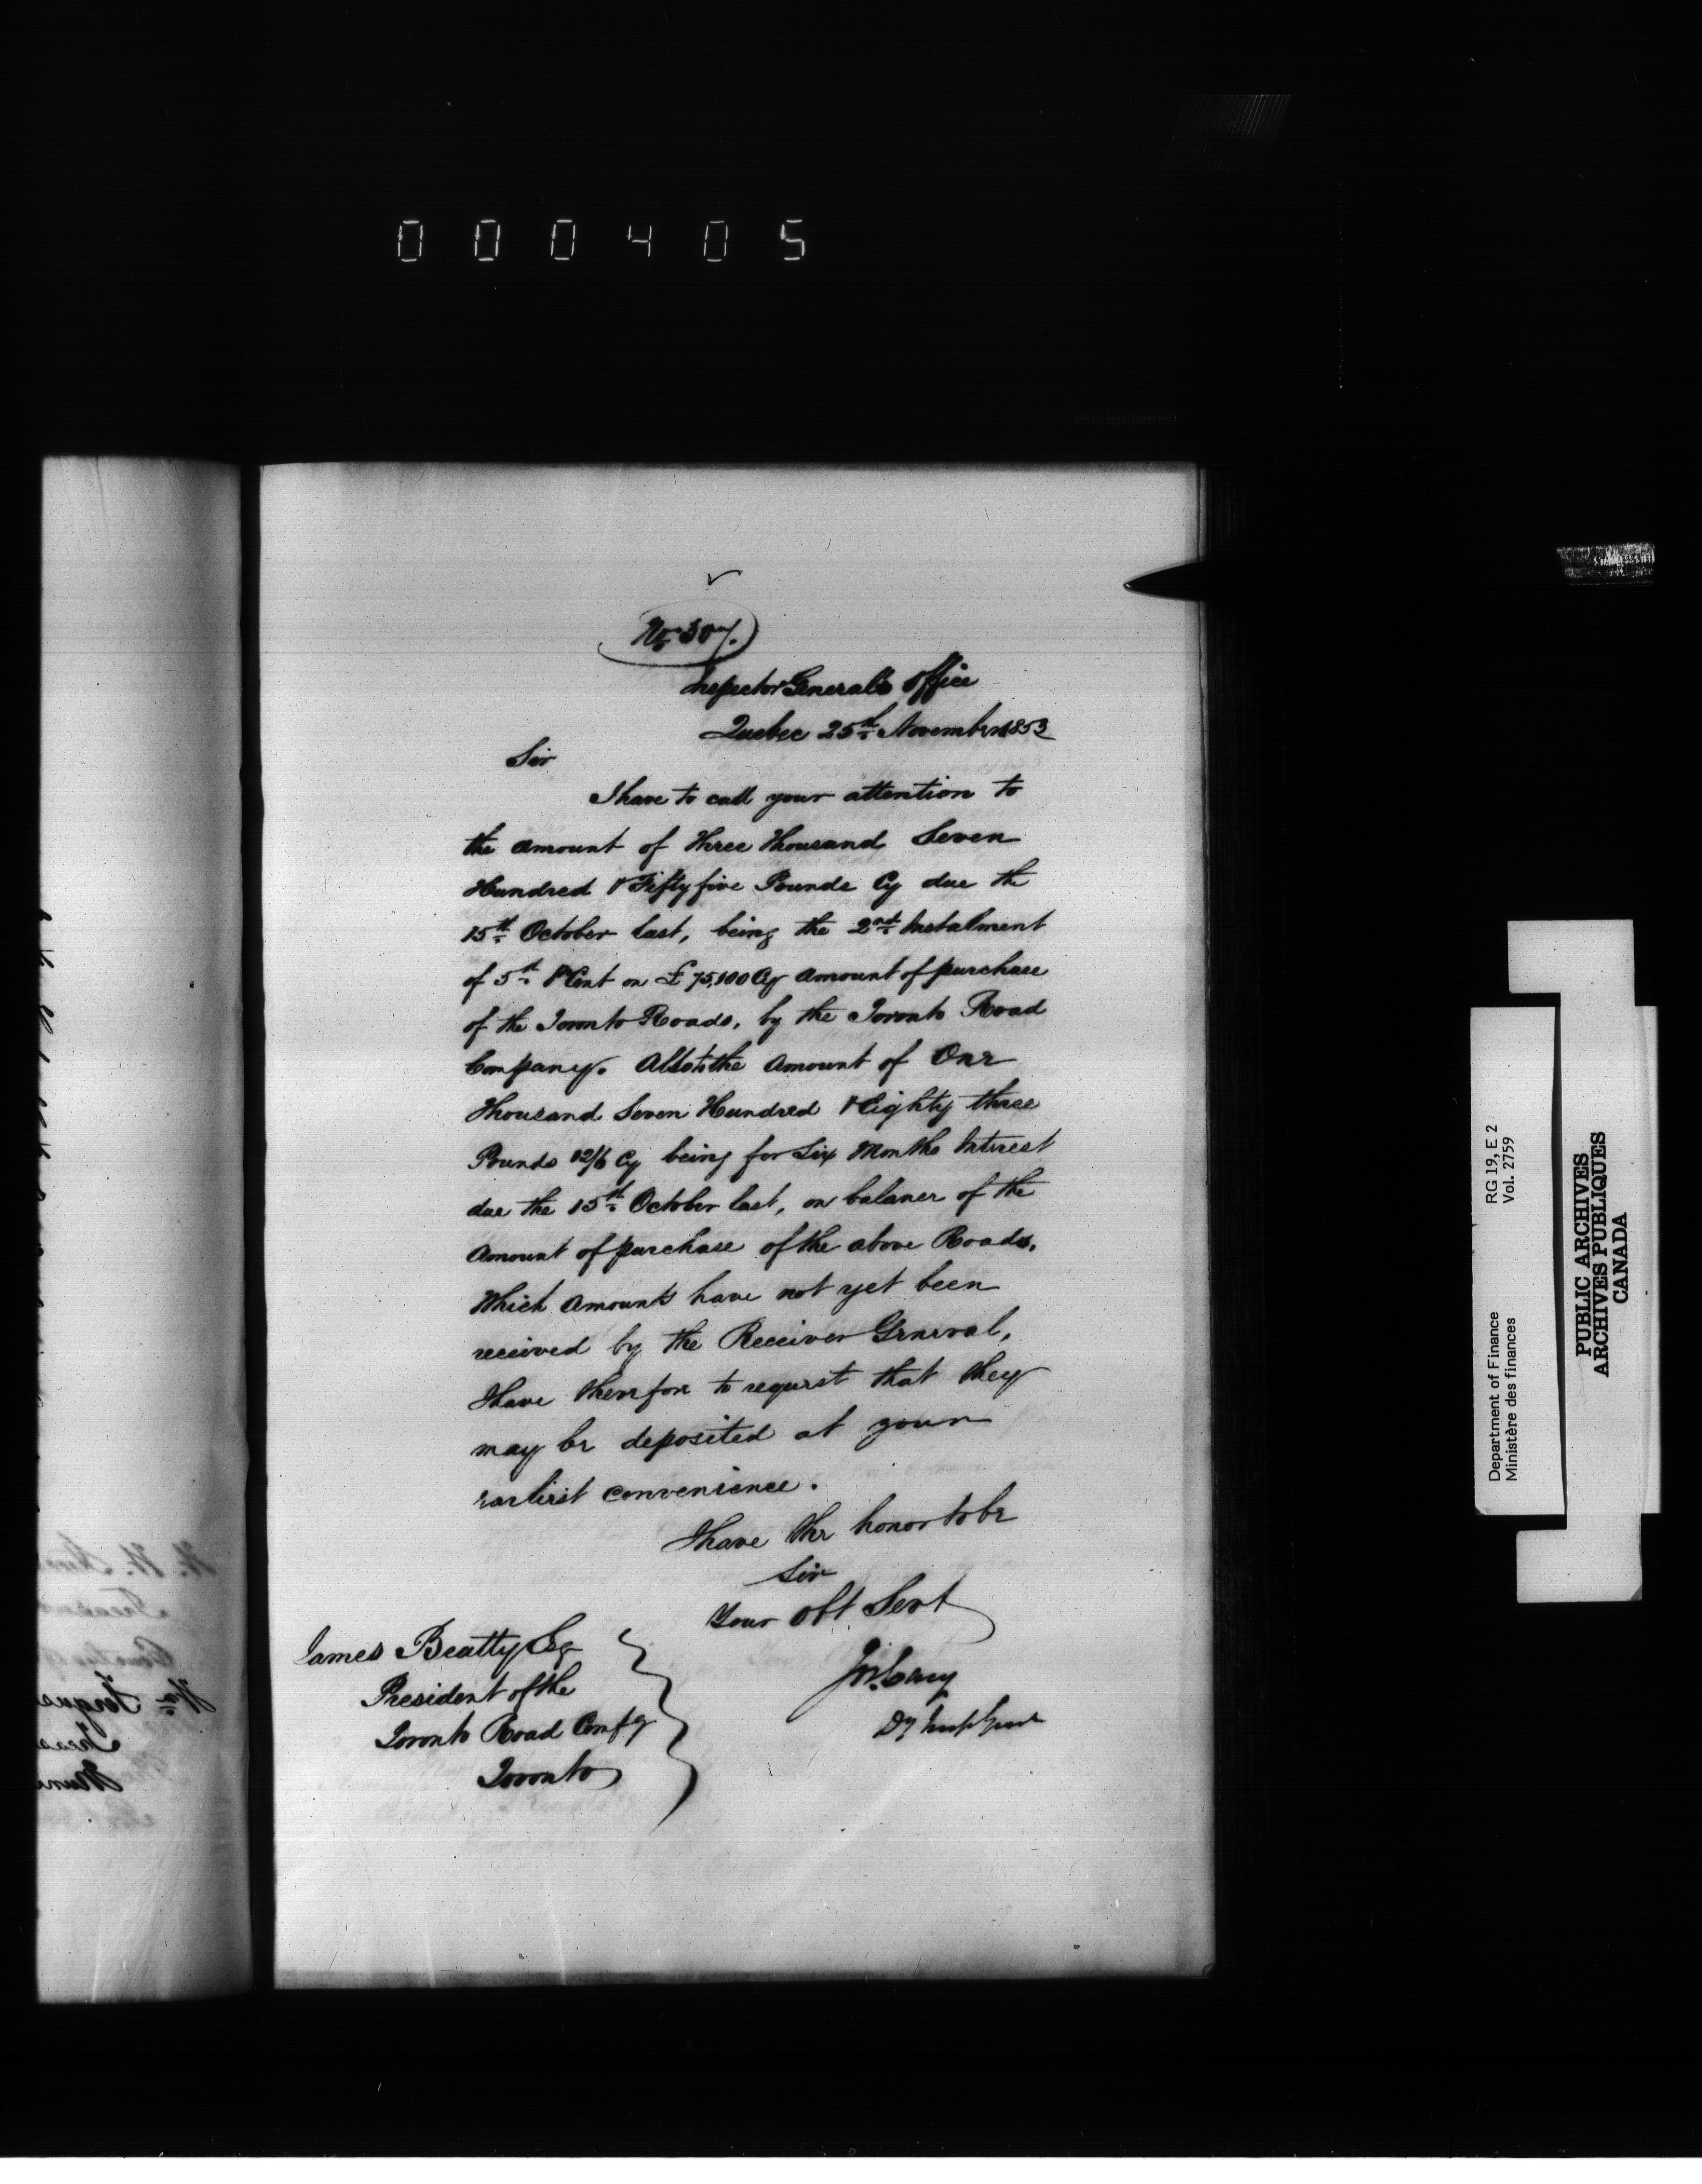 000405
No 307.
Inspector General's Office
Quebec 25th November 1853
Sir
I have to call your attention to
the amount of Three Thousand Seven
Hundred & Fifty five Pounds Cy due the
15th October last, being the 2nd Instalment
of 5th P Cent on £75,100 Cy amount of purchase
of the Toronto Roads, by the Toronto Road
Company. Also to the amount of One
Thousand Seven Hundred & Eighty three
Pounds 12/6 Cy being for Six Months Interest
due the 15th October last, on balance of the
amount of purchase of the above Roads,
Which amounts have not yet been
received by the Receiver General,
I have therefore to request that they
may be deposited at your
earliest convenience.
I have the honor to be
Sir
Your Obt Servt
Jos. Cary
Dy Insp Genl
James Beatty Esq
President of the
Toronto Road Compy
Toronto
RG 19, E 2
Vol. 2759
Department of Finance
Ministère des finances
PUBLIC ARCHIVES
ARCHIVES PUBLIQUES
CANADA